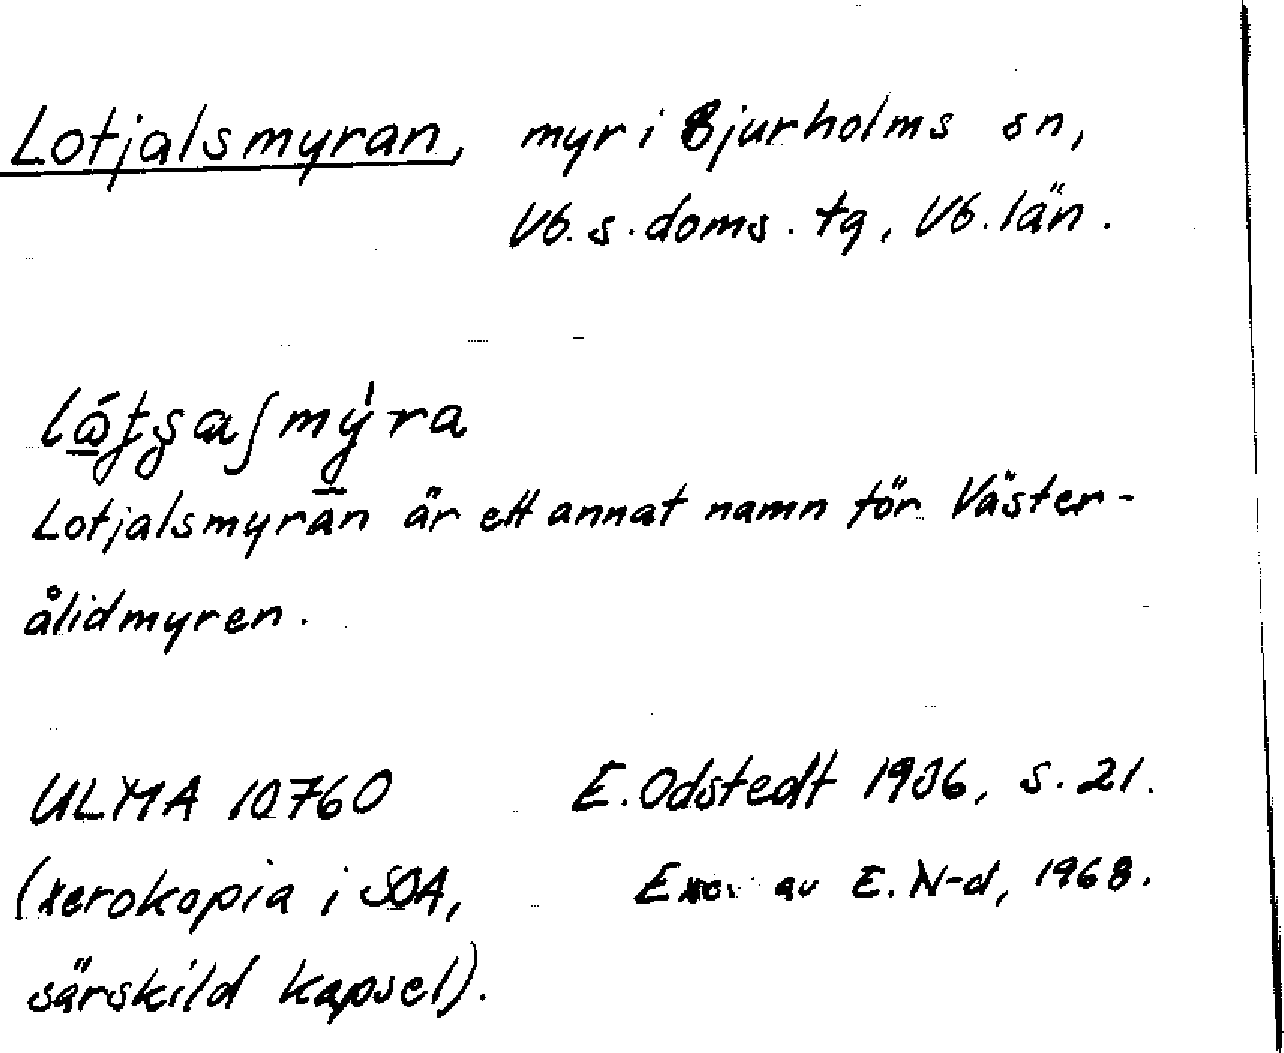 Lotjalsmyran, myr i Bjurholms sn,
Vb. s. doms. tg, Vb. län.
Lotjalsmyran är ett annat namn för Väster-
ålidmyren.
ULMA 10760 E. Odstedt 1936, s. 21.
(xerokopia i SOA, Exc. av E. N-d, 1968.
särskild kapsel).